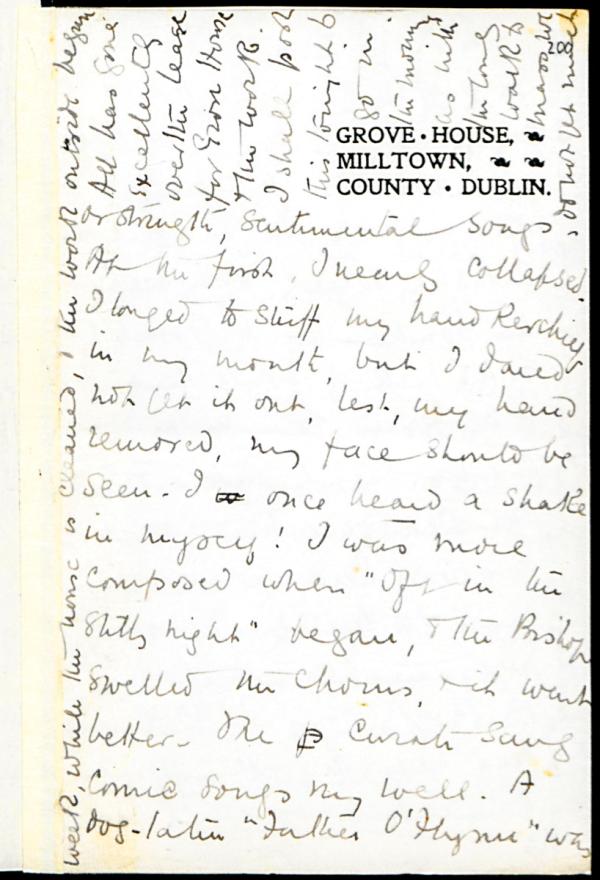 208
GROVE · HOUSE,
MILLTOWN,
COUNTY · DUBLIN.
or strength, sentimental songs.
At the first, I nearly collapsed.
I longed to stuff my handkerchief
in my mouth, but I dared
not get it out, lest, my hand
removed, my face should be
seen. I once heard a shake
in myself! I was more
composed when "Oft in the
Stilly night" began, & the Bishop
swelled the chorus, & it went
better. The Curate sang
Comic songs very well. A
dog-latin "Father O'Flynn" was
week, while the house is cleaned, & the work outside begun
All has gone
excellently
over the lease
for Eron House
& the work.
I shall post
this tonight to
go in
the morning
as with
the long
walk to
mass we
do not get much